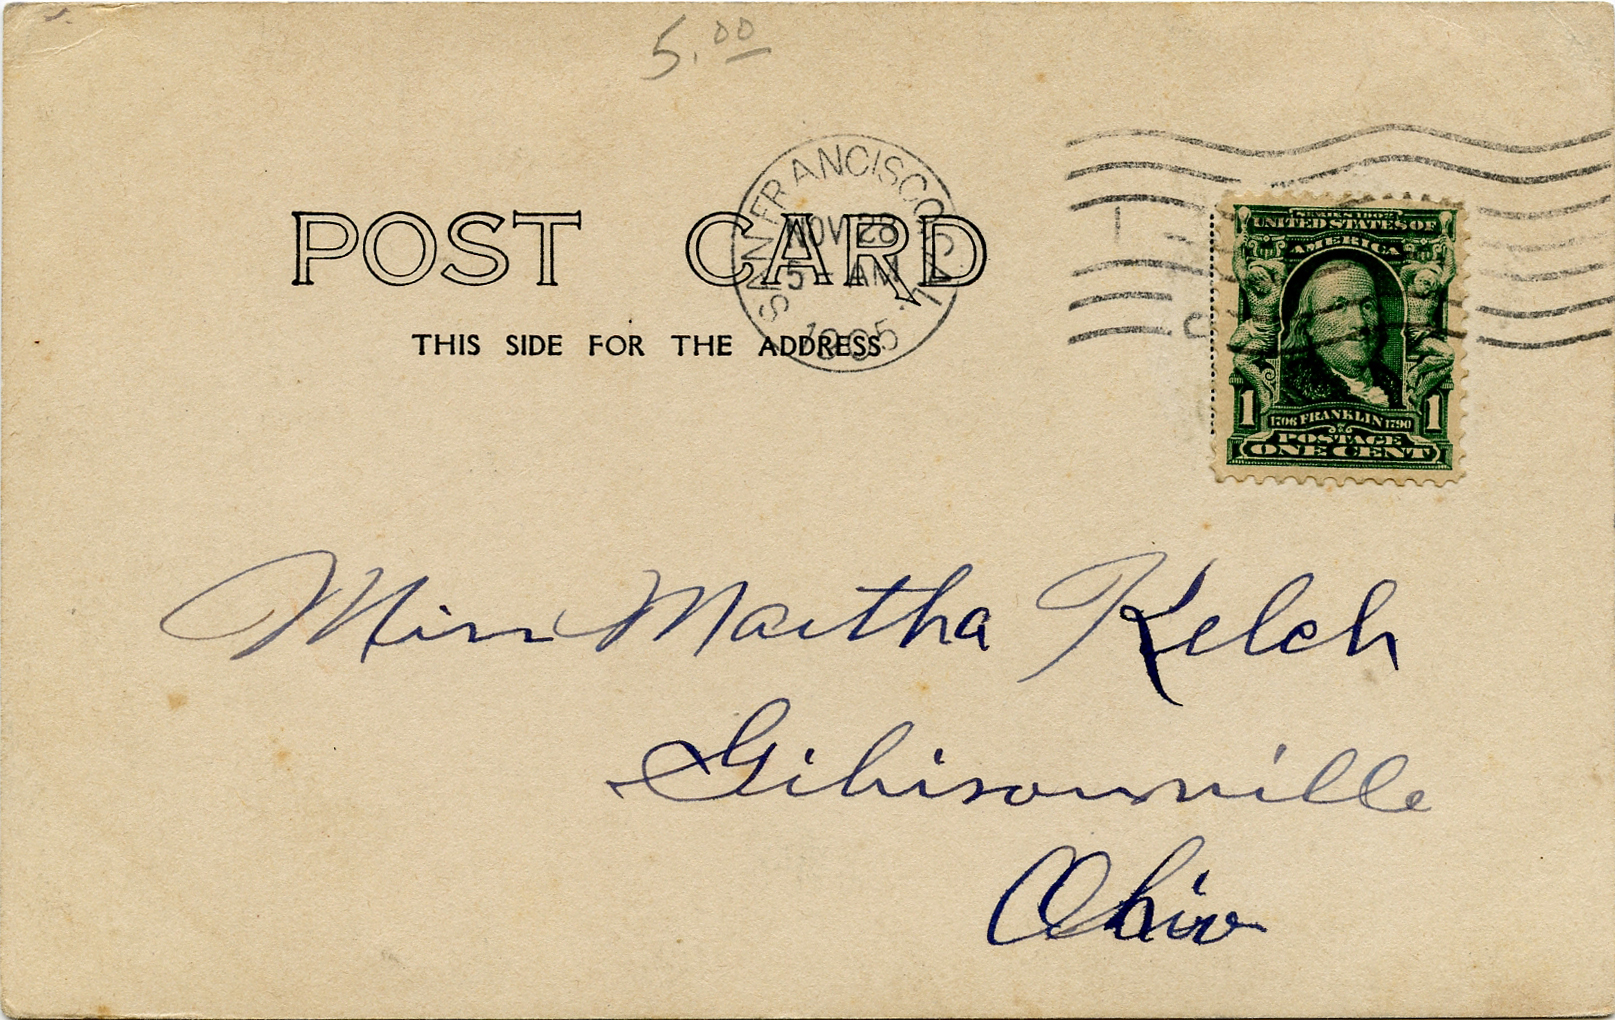 5.00
SAN FRANCISCO, CAL.
NOV 28
5 - AM
1905
POST CARD
THIS SIDE FOR THE ADDRESS
1
SERIES 1902
UNITED STATES OF
AMERICA
1 1
1706 FRANKLIN 1790
POSTAGE
ONE CENT
Miss Martha Kelch
Gibisonville
Ohio